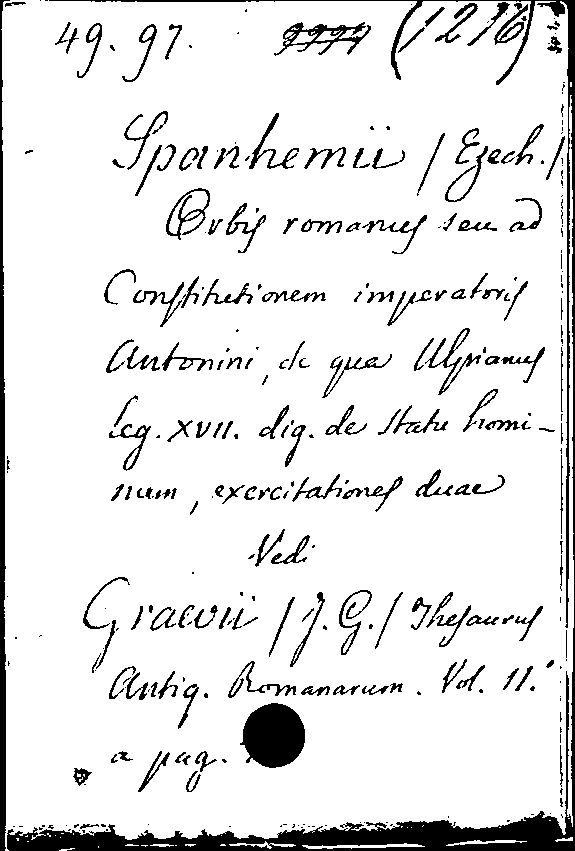 49. 97. (1216)
Spanhemii / Ezech./
Orbis romanus seu ad
Constitutionem imperatoris
Antonini, de qua Ulpianus
leg. XVII. dig. de statu homi-
num, exercitationes duae
Vedi
Graevii / J. G./ Thesaurus
Antiq. Romanarum. Vol. 11.°
a pag.